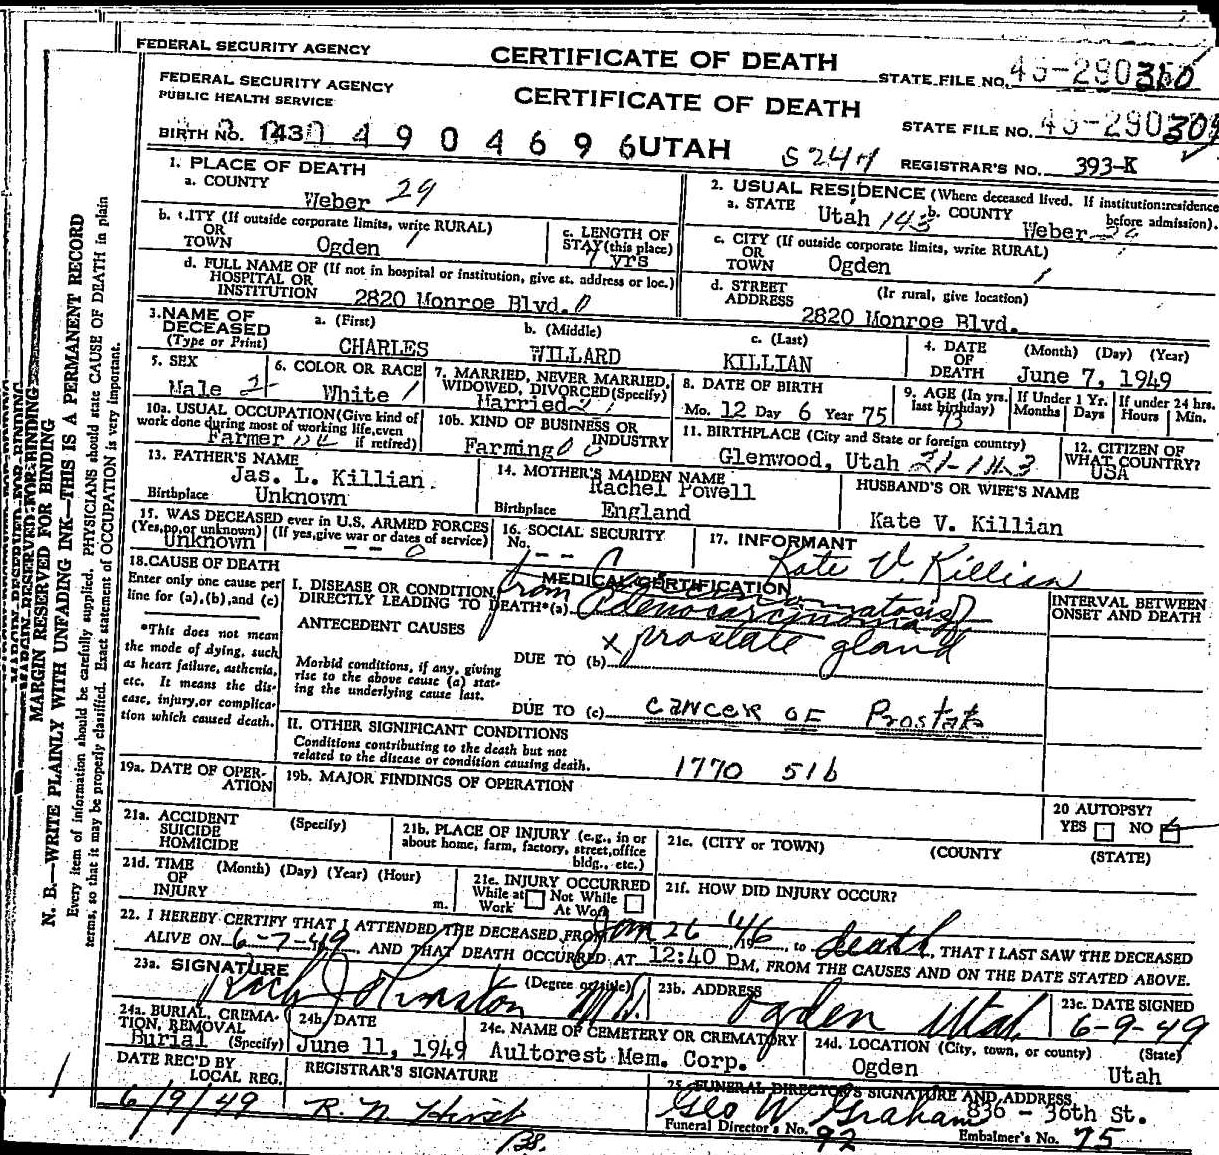 FEDERAL SECURITY AGENCY CERTIFICATE OF DEATH STATE FILE NO.
FEDERAL SECURITY AGENCY
PUBLIC HEALTH SERVICE CERTIFICATE OF DEATH STATE FILE NO.
BIRTH NO. 143 4904696 UTAH S24H REGISTRAR'S NO. 393-K
1. PLACE OF DEATH
a. COUNTY
Weber 29
2. USUAL RESIDENCE (Where deceased lived. If institution:residence before admission).
a. STATE Utah 143 b. COUNTY Weber
b. CITY (If outside corporate limits, write RURAL)
OR
TOWN Ogden
c. LENGTH OF
STAY (this place)
7 yrs
c. CITY (If outside corporate limits, write RURAL)
OR
TOWN Ogden
d. FULL NAME OF (If not in hospital or institution, give st. address or loc.)
HOSPITAL OR
INSTITUTION 2820 Monroe Blvd. 0
d. STREET (If rural, give location)
ADDRESS 2820 Monroe Blvd.
3. NAME OF
DECEASED
(Type or Print)
a. (First) b. (Middle) c. (Last)
CHARLES WILLARD KILLIAN
4. DATE
OF
DEATH
(Month) (Day) (Year)
June 7, 1949
5. SEX
Male 2
6. COLOR OR RACE
White 1
7. MARRIED, NEVER MARRIED,
WIDOWED, DIVORCED (Specify)
Married 2
8. DATE OF BIRTH
Mo. 12 Day 6 Year 75
9. AGE (In yrs.
last birthday)
If Under 1 Yr.
Months Days
If under 24 hrs.
Hours Min.
10a. USUAL OCCUPATION (Give kind of
work done during most of working life, even
if retired)
Farmer
10b. KIND OF BUSINESS OR
INDUSTRY
Farming 00
11. BIRTHPLACE (City and State or foreign country)
Glenwood, Utah 21-143
12. CITIZEN OF
WHAT COUNTRY?
USA
13. FATHER'S NAME
Jas. L. Killian.
Birthplace Unknown
14. MOTHER'S MAIDEN NAME
Rachel Powell
Birthplace England
HUSBAND'S OR WIFE'S NAME
Kate V. Killian
15. WAS DECEASED ever in U.S. ARMED FORCES
(Yes, no, or unknown) (If yes, give war or dates of service)
Unknown - - 0
16. SOCIAL SECURITY
No. - -
17. INFORMANT
Kate V. Killian
18. CAUSE OF DEATH
Enter only one cause per
line for (a), (b), and (c)
MEDICAL CERTIFICATION
I. DISEASE OR CONDITION,
DIRECTLY LEADING TO DEATH*(a)
Carcinomatosis
from Adenocarcinoma of
INTERVAL BETWEEN
ONSET AND DEATH
*This does not mean
the mode of dying, such
as heart failure, asthenia,
etc. It means the dis-
ease, injury, or complica-
tion which caused death.
ANTECEDENT CAUSES
Morbid conditions, if any, giving
rise to the above cause (a) stat-
ing the underlying cause last.
DUE TO (b) x prostate gland
DUE TO (c) Cancer of Prostate
II. OTHER SIGNIFICANT CONDITIONS
Conditions contributing to the death but not
related to the disease or condition causing death.
1770 51b
19a. DATE OF OPER-
ATION
19b. MAJOR FINDINGS OF OPERATION
20 AUTOPSY?
YES NO
21a. ACCIDENT
SUICIDE
HOMICIDE
(Specify)
21b. PLACE OF INJURY (e.g., in or
about home, farm, factory, street, office
bldg., etc.)
21c. (CITY or TOWN) (COUNTY (STATE)
21d. TIME
OF
INJURY
(Month) (Day) (Year) (Hour)
m.
21e. INJURY OCCURRED
While at Work Not While At Work
21f. HOW DID INJURY OCCUR?
22. I HEREBY CERTIFY THAT I ATTENDED THE DECEASED FROM Jan 26 19 46 to death, THAT I LAST SAW THE DECEASED
ALIVE ON 6-7-49 AND THAT DEATH OCCURRED AT 12:40 P.M, FROM THE CAUSES AND ON THE DATE STATED ABOVE.
23a. SIGNATURE (Degree or title)
Johnston M.D.
23b. ADDRESS
Ogden Utah
23c. DATE SIGNED
6-9-49
24a. BURIAL, CREMA-
TION, REMOVAL
Burial (Specify)
24b. DATE
June 11, 1949
24c. NAME OF CEMETERY OR CREMATORY
Aultorest Mem. Corp.
24d. LOCATION (City, town, or county) (State)
Ogden Utah
DATE REC'D BY
LOCAL REG.
6/9/49
REGISTRAR'S SIGNATURE
25. FUNERAL DIRECTOR'S SIGNATURE AND ADDRESS
Geo W. Graham 836 - 36th St.
Funeral Director's No. 92 Embalmer's No. 75
MARGIN RESERVED FOR BINDING
N. B.—WRITE PLAINLY WITH UNFADING INK—THIS IS A PERMANENT RECORD
Every item of information should be carefully supplied. PHYSICIANS should state CAUSE OF DEATH in plain
terms, so that it may be properly classified. Exact statement of OCCUPATION is very important.